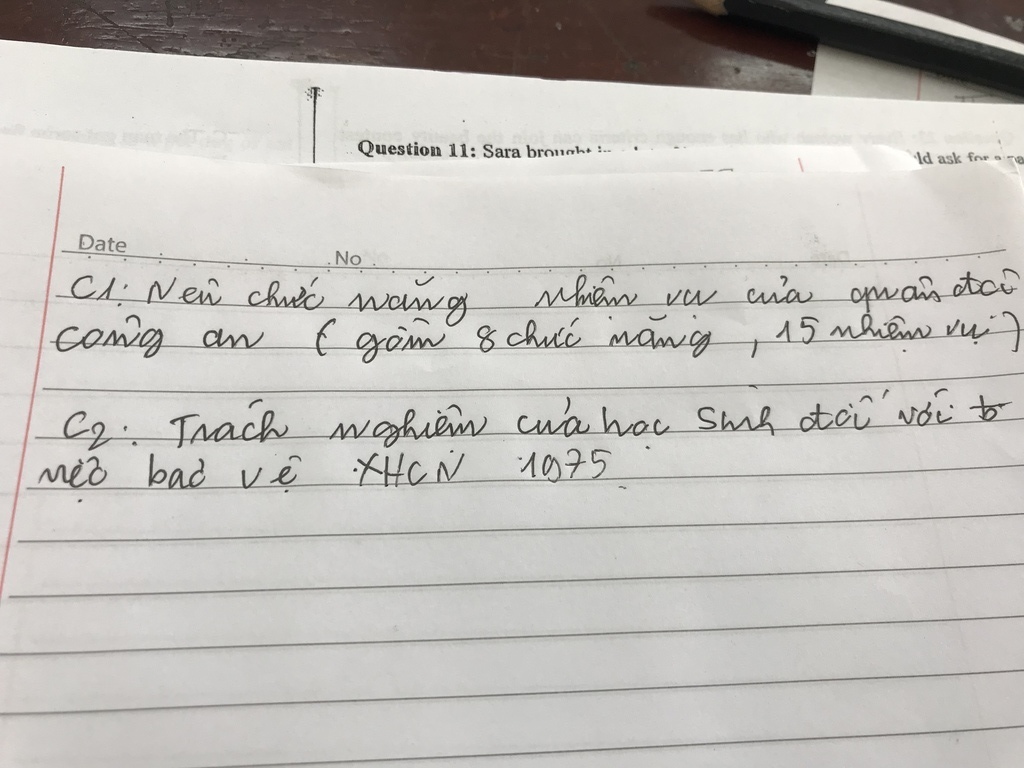 Question 11: Sara brought
ld ask for a
Date No
C1: Nêu chức năng nhiệm vụ của quân đội
công an ( gồm 8 chức năng, 15 nhiệm vụ )
C2: Trách nghiệm của học sinh đối với
bảo vệ XHCN 1975